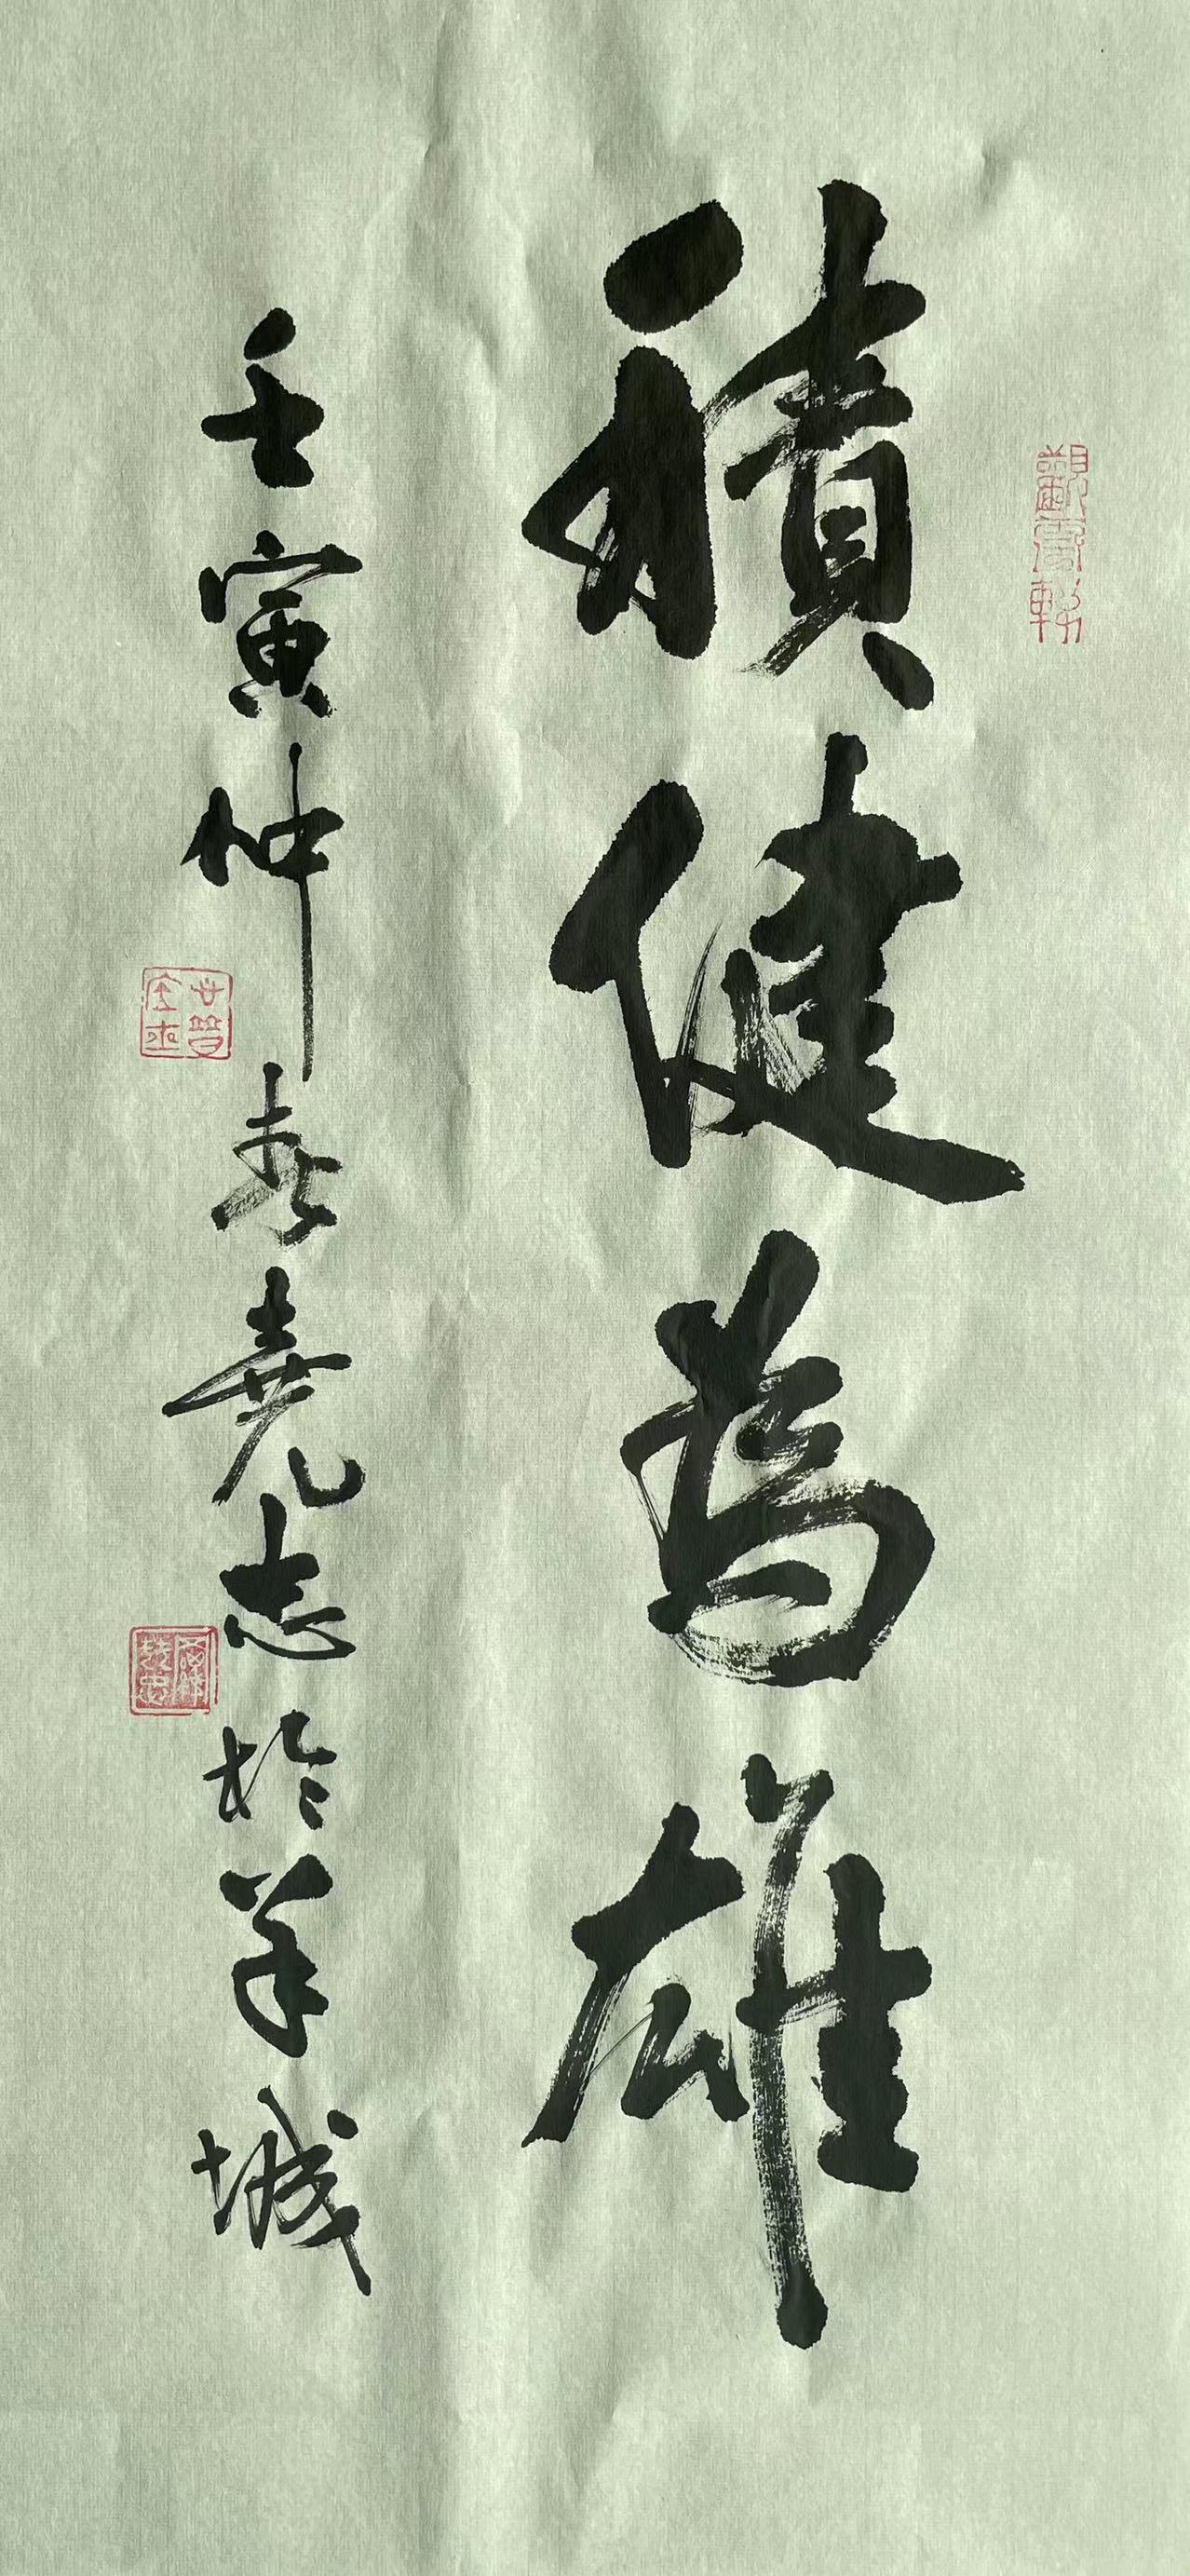 積健為雄
壬寅仲春堯志於羊城